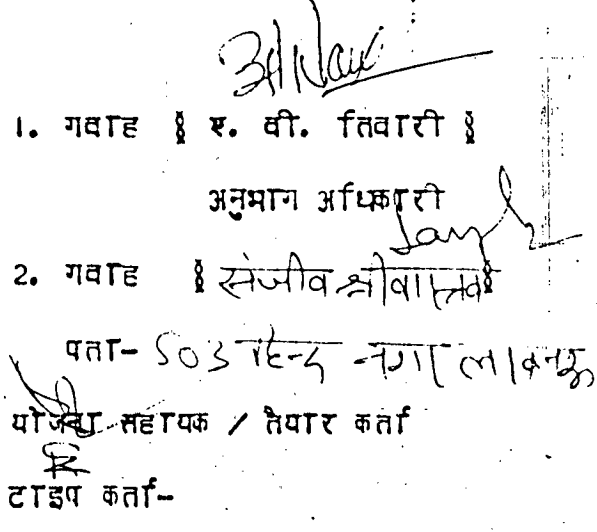 1. गवाह § ए. वी. तिवारी §
अनुभाग अधिकारी
2. गवाह § संजीव श्रीवास्तव §
पता- 503 हिन्द नगर लखनऊ
योजना सहायक / तैयार कर्ता
टाइप कर्ता-